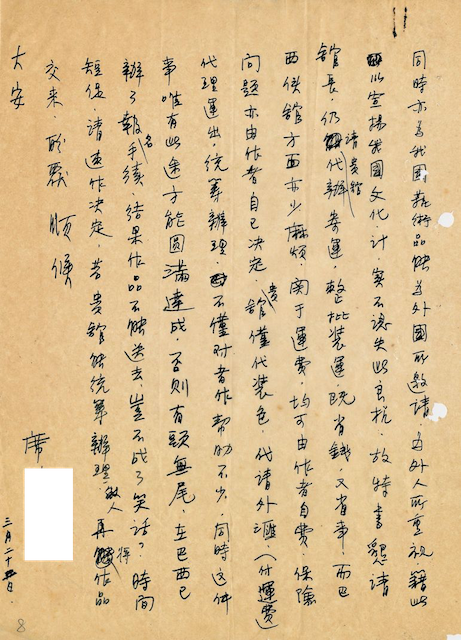 同時亦為我國藝術品能為外國所邀請、為外人所重視藉此
以宣揚我國文化計、實不認失此良机、故特書懇請
館長、仍請貴館代辦寄運、整批裝運、既省錢、又省事、而巴
西使館方面亦少麻煩、関于運費、均可由作者自費、保險
問題亦由作者自已决定、貴館僅代裝包、代請外滙、(付運費
代理運出、統筹辦理、不僅对者作帮助不少、同時这件
事唯有此途方能圓滿達成、否則有題無尾、在巴西已
辦了報名手續、結果作品不能送去、豈不成了笑話?時間
短促、請速作决定、若貴館能統筹辦理、敝人再將作品
交来、盼覆 順頌
大安
席
三月二十五日、
8